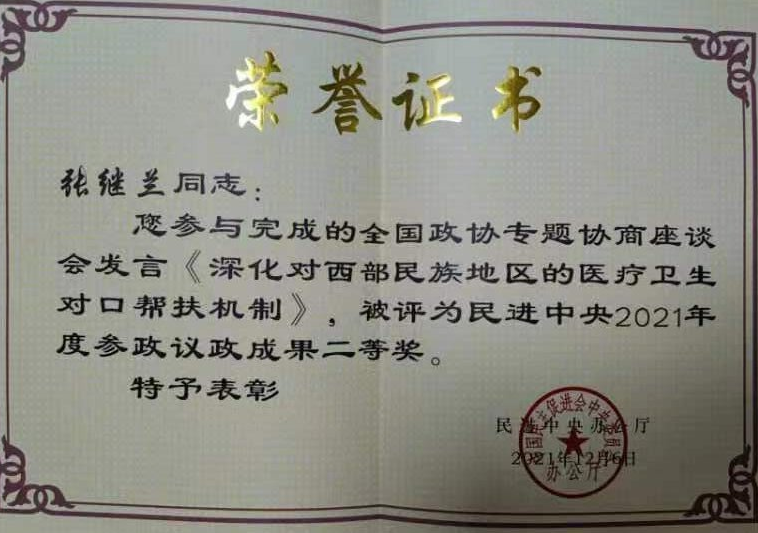 荣誉证书
张继兰同志：
您参与完成的全国政协专题协商座谈
会发言《深化对西部民族地区的医疗卫生
对口帮扶机制》，被评为民进中央2021年
度参政议政成果二等奖。
特予表彰
民进中央办公厅
2021年12月6日
中国民主促进会中央委员会
办公厅